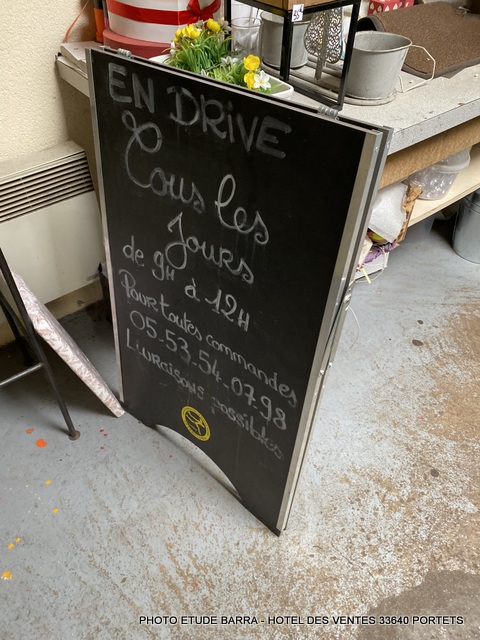 EN DRIVE
Tous les
Jours
de 9H à 12H
Pour toutes commandes
05.53.54.07.98
Livraisons possibles
PHOTO ETUDE BARRA - HOTEL DES VENTES 33640 PORTETS